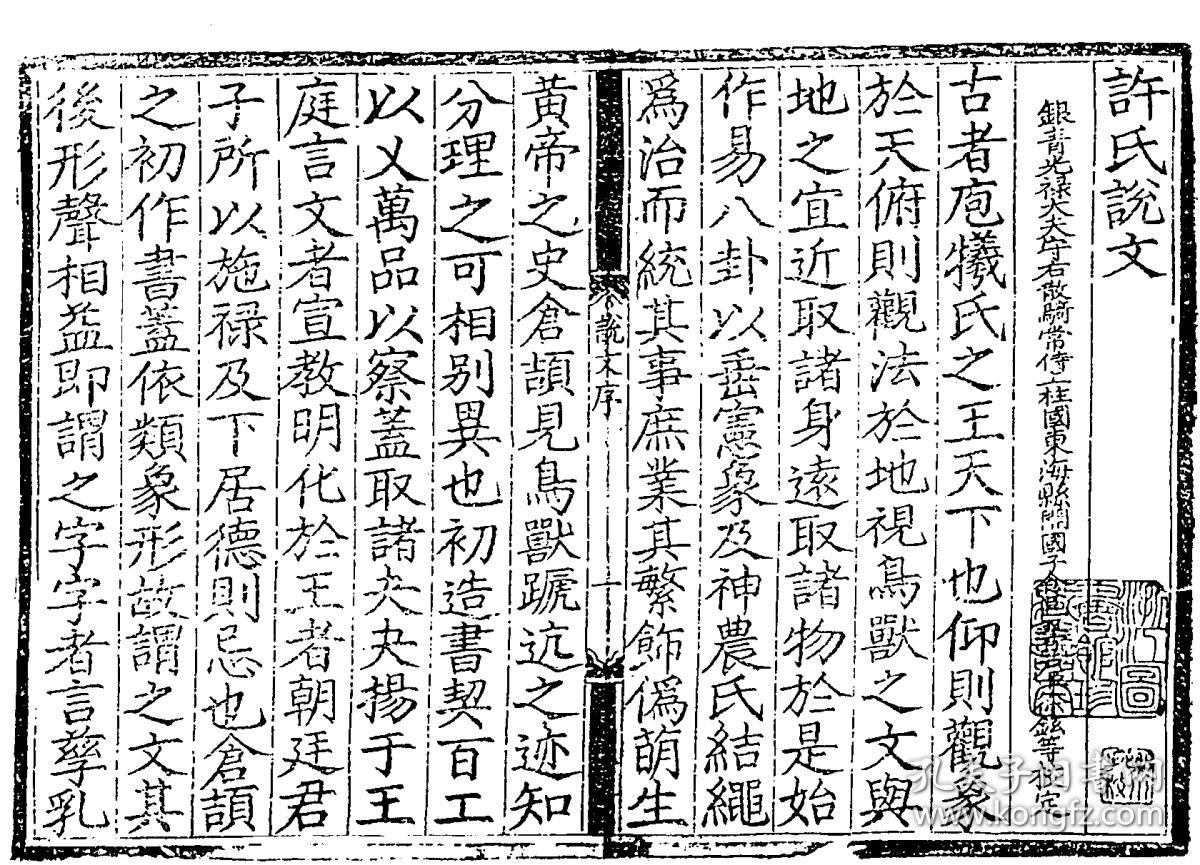 許氏說文
銀青光禄大夫守右散騎常侍上柱國東海縣開國子食邑五百户臣徐鉉等校定
古者庖犧氏之王天下也仰則觀象
於天俯則觀法於地視鳥獸之文與
地之宜近取諸身遠取諸物於是始
作易八卦以垂憲象及神農氏結繩
爲治而統其事庶業其繁飾僞萌生
說文序
黄帝之史倉頡見鳥獸蹏迒之迹知
分理之可相别異也初造書契百工
以乂萬品以察蓋取諸夬夬揚于王
庭言文者宣教明化於王者朝廷君
子所以施禄及下居德則忌也倉頡
之初作書蓋依類象形故謂之文其
後形聲相益即謂之字字者言孳乳
孔夫子旧书网
www.kongfz.com